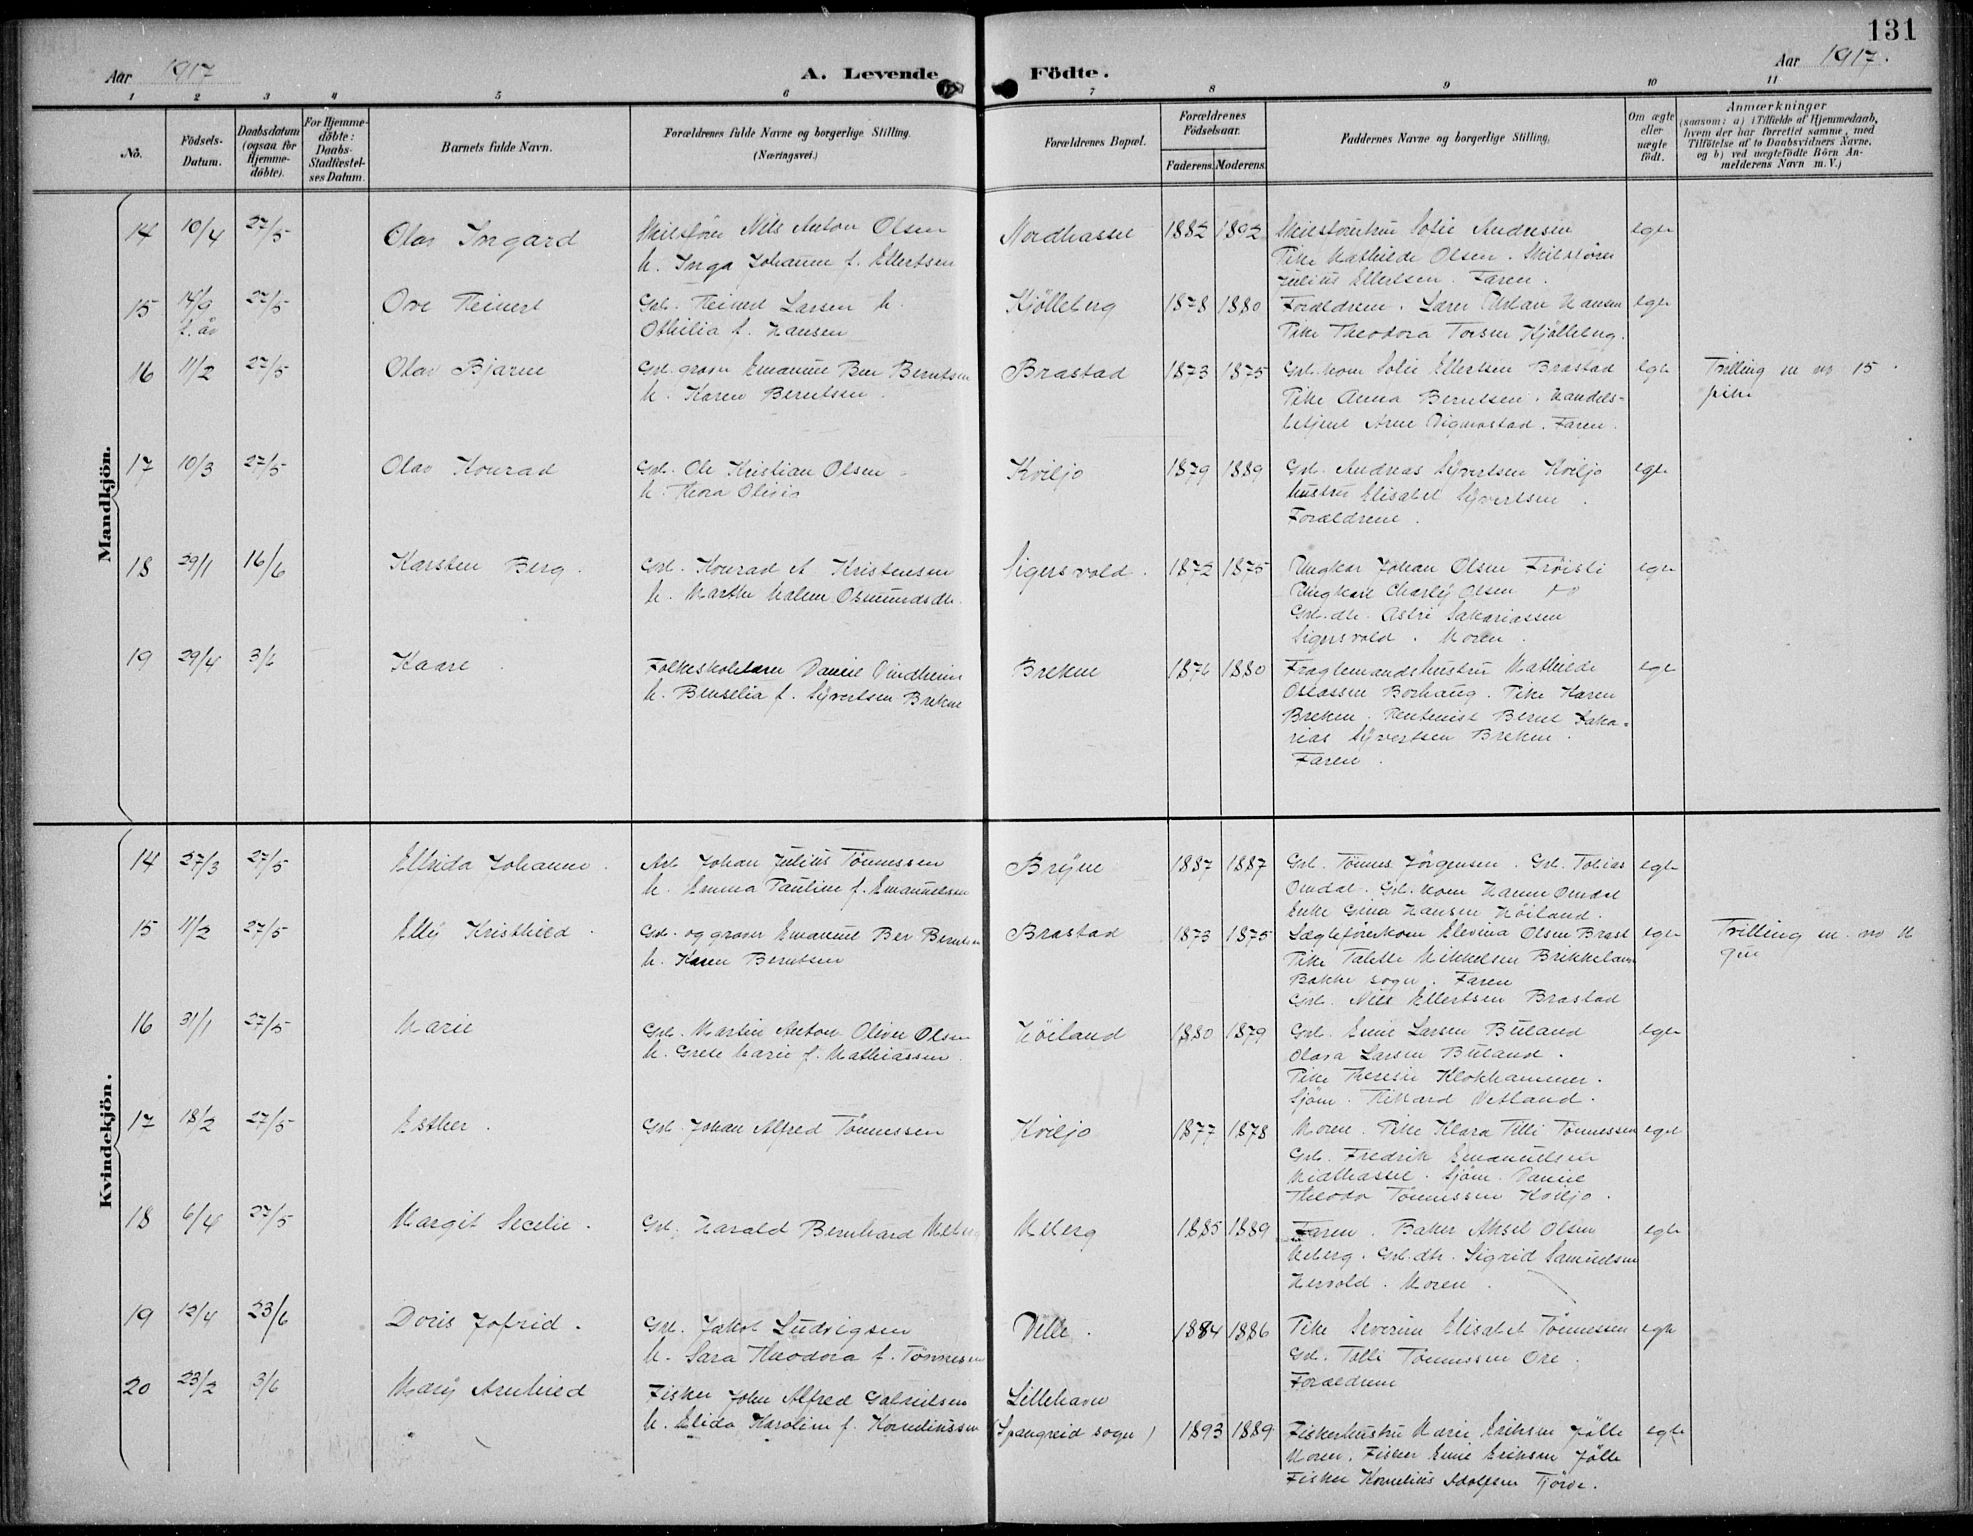 131
Aar 1917
A. Levende Födte.
Aar 1917.
1 2 3 4 5 6 7 8 9 10 11
No.
Födsels-Datum.
Daabsdatum (ogsaa for Hjemme-döbte).
For Hjemme-döbte: Daabs-Stadfæstel-ses Datum.
Barnets fulde Navn.
Forældrenes fulde Navne og borgerlige Stilling. (Næringsvei.)
Forældrenes Bopæl.
Forældrenes Födselsaar.
Faderens. Moderens.
Faddernes Navne og borgerlige Stilling.
Om ægte eller uægte födt.
Anmærkninger
(saasom: a) i Tilfælde af Hjemmedaab, hvem der har forrettet samme, med Tilföielse af to Daabsvidners Navne, og b) ved uægtefödte Börn An-melderens Navn m. V.)
Mandkjön.
14 10/4 27/5 Olav Ingard
Skibsförer Nils Anton Olsen
h. Inga Johanne f. Ellertsen
Nordhassel 1882 1892
Sofie Andresen
Pike Mathilde Olsen. Skibsförer
Julius Ellertsen. Faren.
egte
15 14/9 f. år 27/5 Ove Reinert
Gbr. Reinert Larsen h
Othilia f. Hansen
Kjölleberg 1878 1880
Forældrene. Hansen
Pike Theodora Kjölleberg.
egte
16 11/2 27/5 Olav Bjarne
Gbr. Emanuel Ber Berntsen
h. Karen Berntsen.
Brastad 1873 1875
Gbr. kone Sofie Ellertsen Brastad
Pike Anna Berntsen. Handels-
betjent Arne Vigmostad. Faren.
egte
Trilling m no 15.
pike
17 10/3 27/5 Olav Konrad
Gbr. Ole Kristian Olsen
h. Thora
Kviljo 1879 1889
Gbr. Andreas Syvertsen Kviljo
hustru Elisabet Syvertsen.
Forældrene.
egte
18 29/1 16/6 Karsten Berg.
Gbr. Konrad A Kristensen
h. Marthe Malene Osmundsdtr.
Sigersvold. 1872 1875
Ungkar Johan Olsen
Ungkar Charly Olsen
Gbr. dtr. Astri Sakariassen
Sigersvold. Moren.
egte
19 29/4 3/6 Kaare.
Folkeskolelærer Daniel Vindheim
h. Benselia f. Syvertsen Brekne
Brekne 1876 1880
Fragtemandshustru Mathilde
Borhaug. Pike Karen
Brekne. Bernt Saka-
rias Syvertsen Brekne.
Faren.
egte
Kvindekjön.
14 27/3 27/5 Johanne.
Arb. Johan Julius Tönnessen
h. Emma Pauline f. Emanuelsen
Bryne 1887 1887
Gbr. Tönnes Jörgensen. Gbr. Tobias
Omdal. Gbr. kone Hanne Omdal
Enke Gina Hansen Höiland.
egte
15 11/2 27/5 Elly Kristhild.
Gbr. og graver Emanuel Ber Berntsen
h. Karen Berntsen
Brastad 1873 1875
Elevina Olsen Brast
Pike Talette Mikkelsen
Bakke sogn. Faren
Gbr. Nils Ellertsen Brastad
egte
Trilling m. no 16
gut
16 31/1 27/5 Marie
Gbr. Martin Anton Oliver Olsen
h. Grete Marie f. Mathiassen.
Höiland 1880 1879
Gbr. Emil Larsen Buland
Olava Larsen Buland.
Pike Theresie Klokhammer.
Sjöm. Rikard Vetland.
egte
17 18/2 27/5 Esther.
Gbr. Johan Alfred Tönnessen
Kviljo 1877 1878
Moren. Pike Klara Tilli Tönnessen
Gbr. Fredrik Emanuelsen
Midthassel. Sjöm. Daniel
Theodor Tönnessen Kviljo.
egte
18 6/4 27/5 Margit Secelie.
Gbr. Harald Bernhard Meberg
Meberg 1885 1889
Faren. Baker Aksel Olsen
Meberg. Gbr. dtr. Sigrid Samuelsen
Hervold. Moren.
egte
19 12/4 23/6 Doris Jofrid.
Gbr. Jakob Ludvigsen
h. Sara Theodora f. Tönnesen
Velle. 1884 1886
Pike Severine Elisabet Tönnessen
Gbr. Tönnessen Ore.
Forældrene
egte
20 23/2 3/6 Mary Arnhild
Fisker John Alfred Gabrielsen
h. Elida Karoline f. Korneliussen
Lillehavn
(Spangreid sogn) 1893 1889
Fiskerhustru Maren Eriksen Jölle
Moren. Fisker Emil Eriksen Jölle
Fisker Kornelius Adolfsen Tjörve.
egte